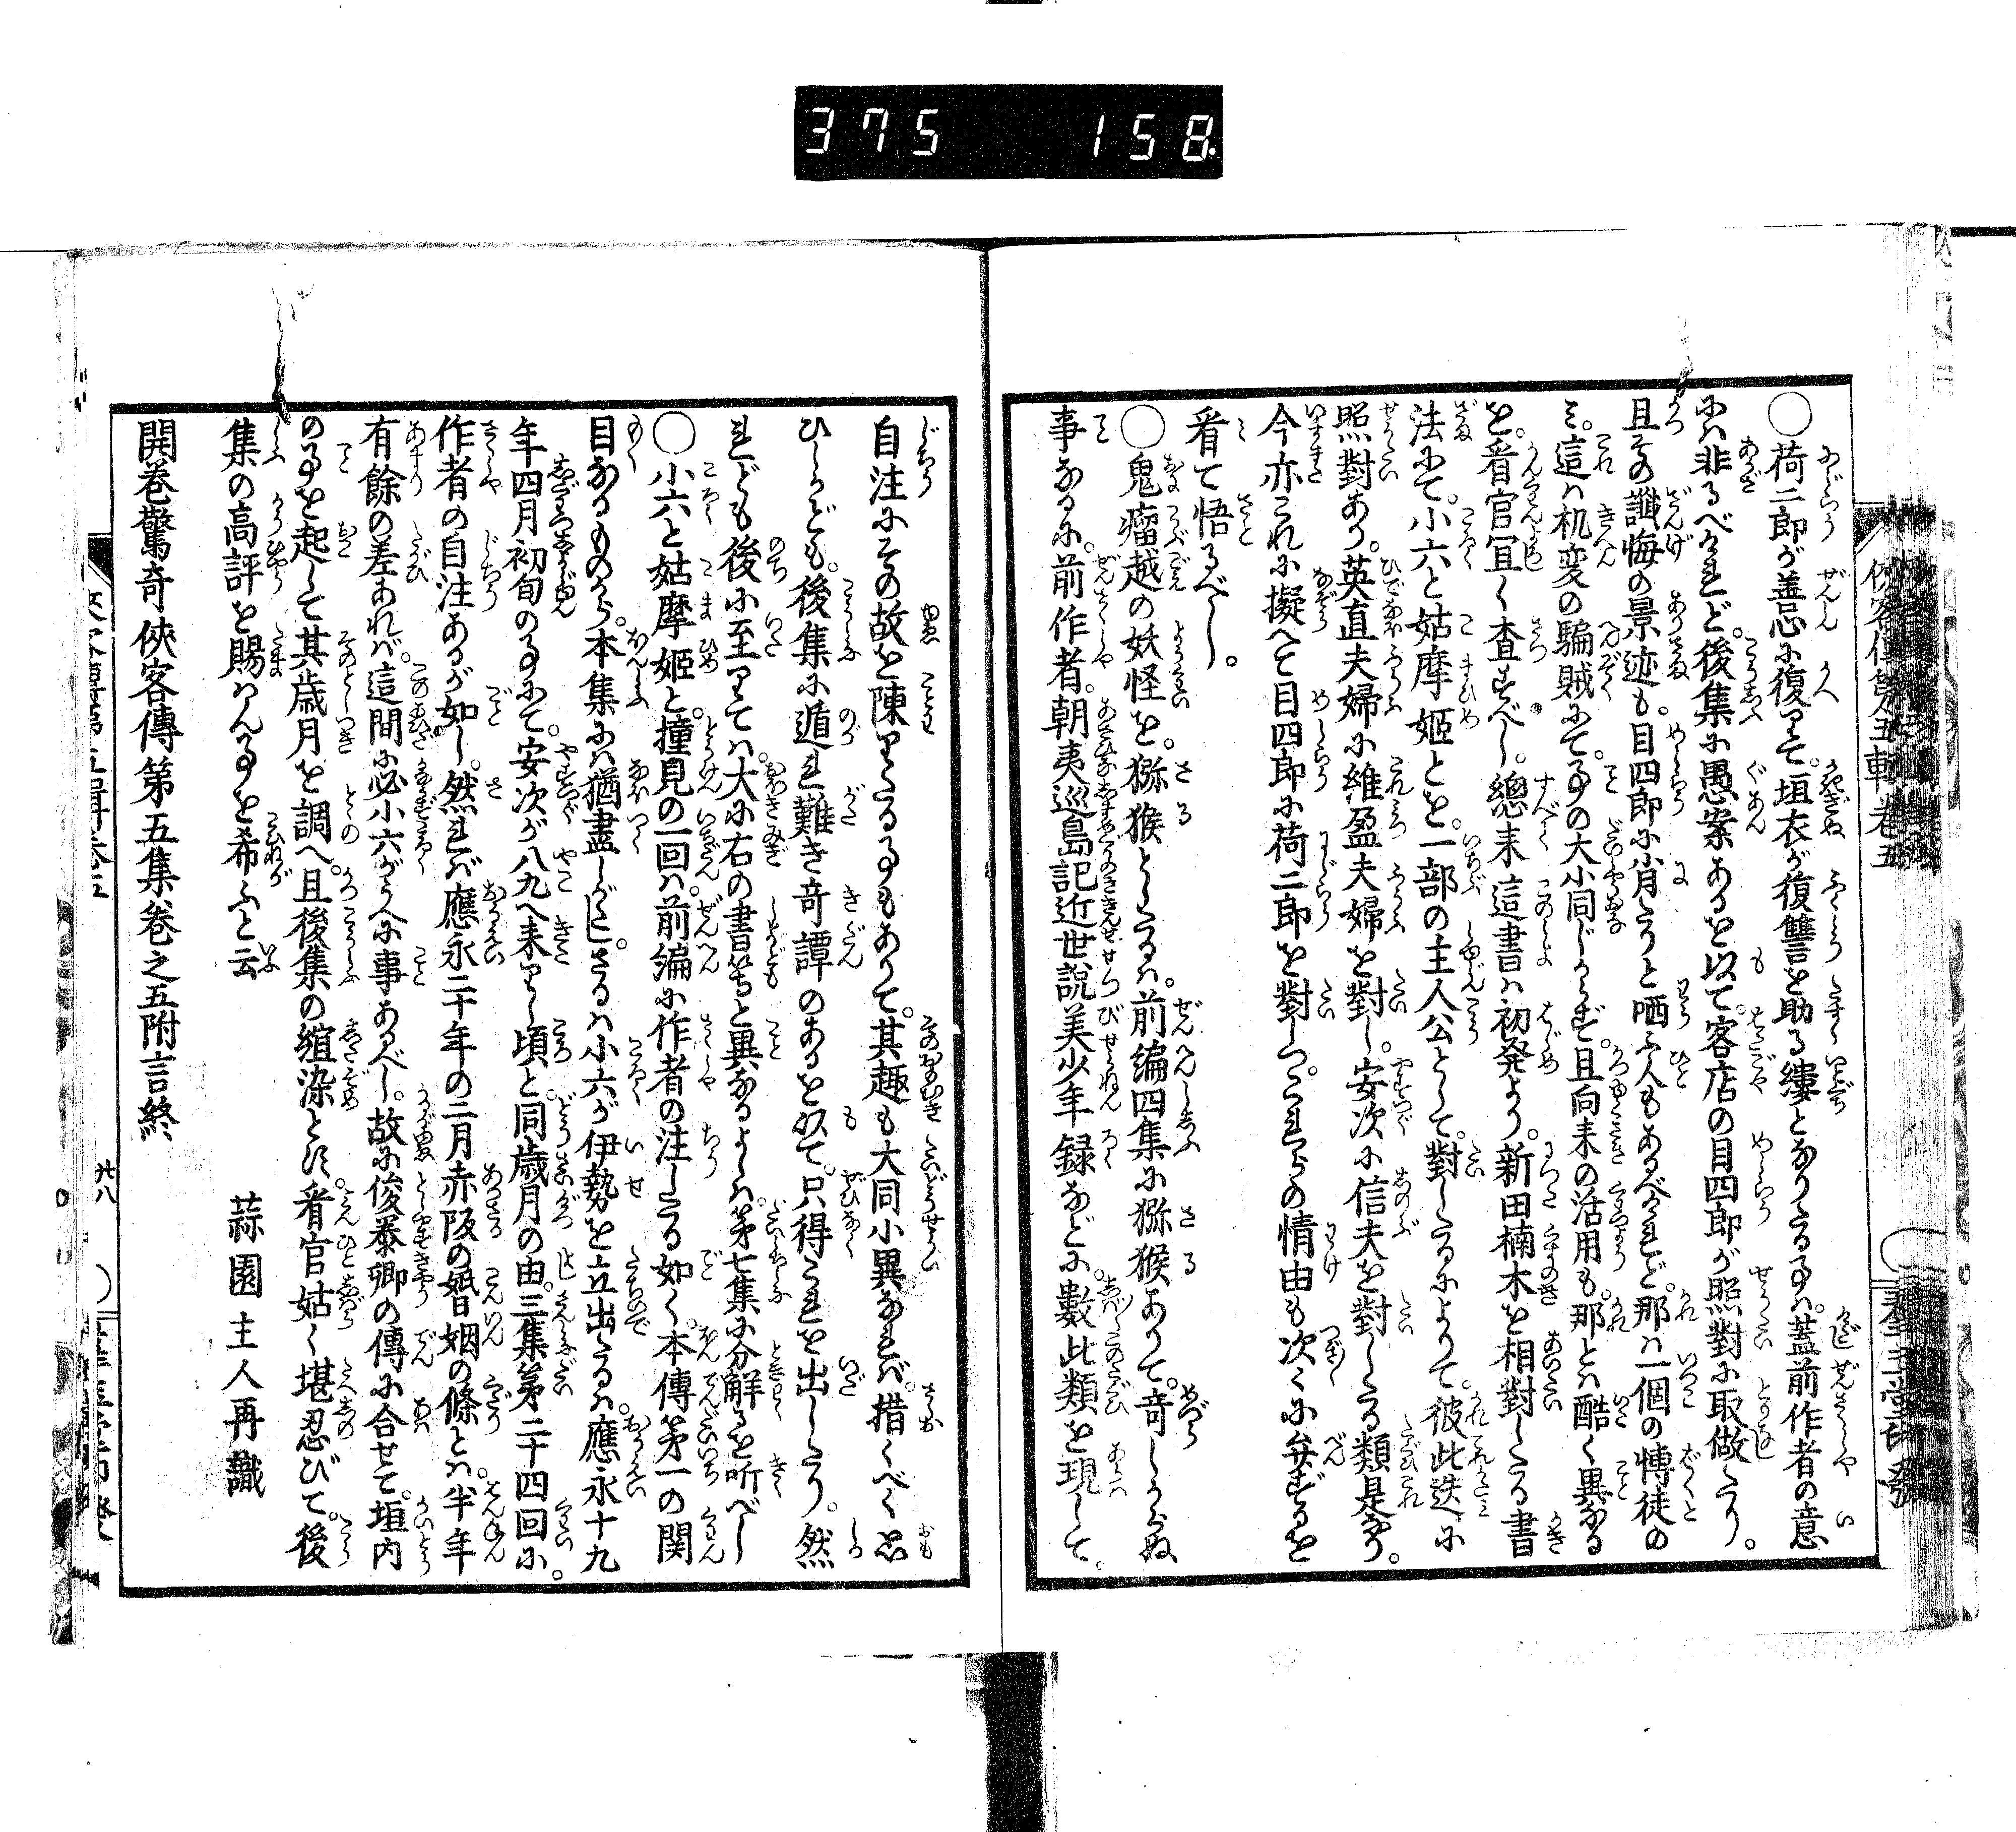 375 158
○荷二郎が善心に復りて。垣衣が復讐を助る縷となりたる事は。蓋前作者の意
には非るべけれど。後集に愚案あるを以て。客店の目四郎が照對に取做たり。
且その讖悔の景迹も。目四郎に肖たりと哂ふ人もあるべけれど。那は一個の博徒の
ミ。這は机変の騙賊にて。事の大小同じからず。且向来の活用も。那とは酷く異なる
を。看官宜く査すべし。總て這書は初発より。新田楠木を相對したる書
法にて。小六と姑摩姫とを。一部の主人公として。對したるによりて。彼此迭に
照對あり。英直夫婦に維盈夫婦を對し。安次に信夫を對したる類是なり。
今亦これに擬へて目四郎に荷二郎を對しつ。これらの情由も次々に弁ずるを
看て悟るべし。
○鬼瘤越の妖怪を。獼猴としたるは。前編四集に獼猴ありて。奇しからぬ
事なるに。前作者。朝夷巡島記近世説美少年録などに。數此類を現して。
自注にその故を陳りたる事もありて。其趣も大同小異なれば。措くべく思
ひしかども。後集に遁れ難き奇譚のあるを以て。只得これを出したり。然
れども後に至りては。大に右の書等と異なるよしは。第七集に分解るを听べし
○小六と姑摩姫と。撞見の一回は。前編に作者の注したる如く。本傳第一の関
目なるものから。本集には猶盡しがたし。さるは小六が伊勢を立出たるは。應永十九
年四月初旬の事にて。安次が八九へ来りし頃と。同歳月の由。三集第二十四回に。
作者の自注あるが如し。然れば應永二十年の二月赤阪の婚姻の條とは。半年
有餘の差あれバ。這間に必小六がうへに事あるべし。故に俊泰卿の傳に合せて。垣内
の事を起して其歳月を調へ。且後集の縮染とす。看官姑く堪忍びて。後
集の高評を賜はん事を希ふと云
蒜園主人再識
開巻驚奇侠客傳第五集巻之五附言終
廿八